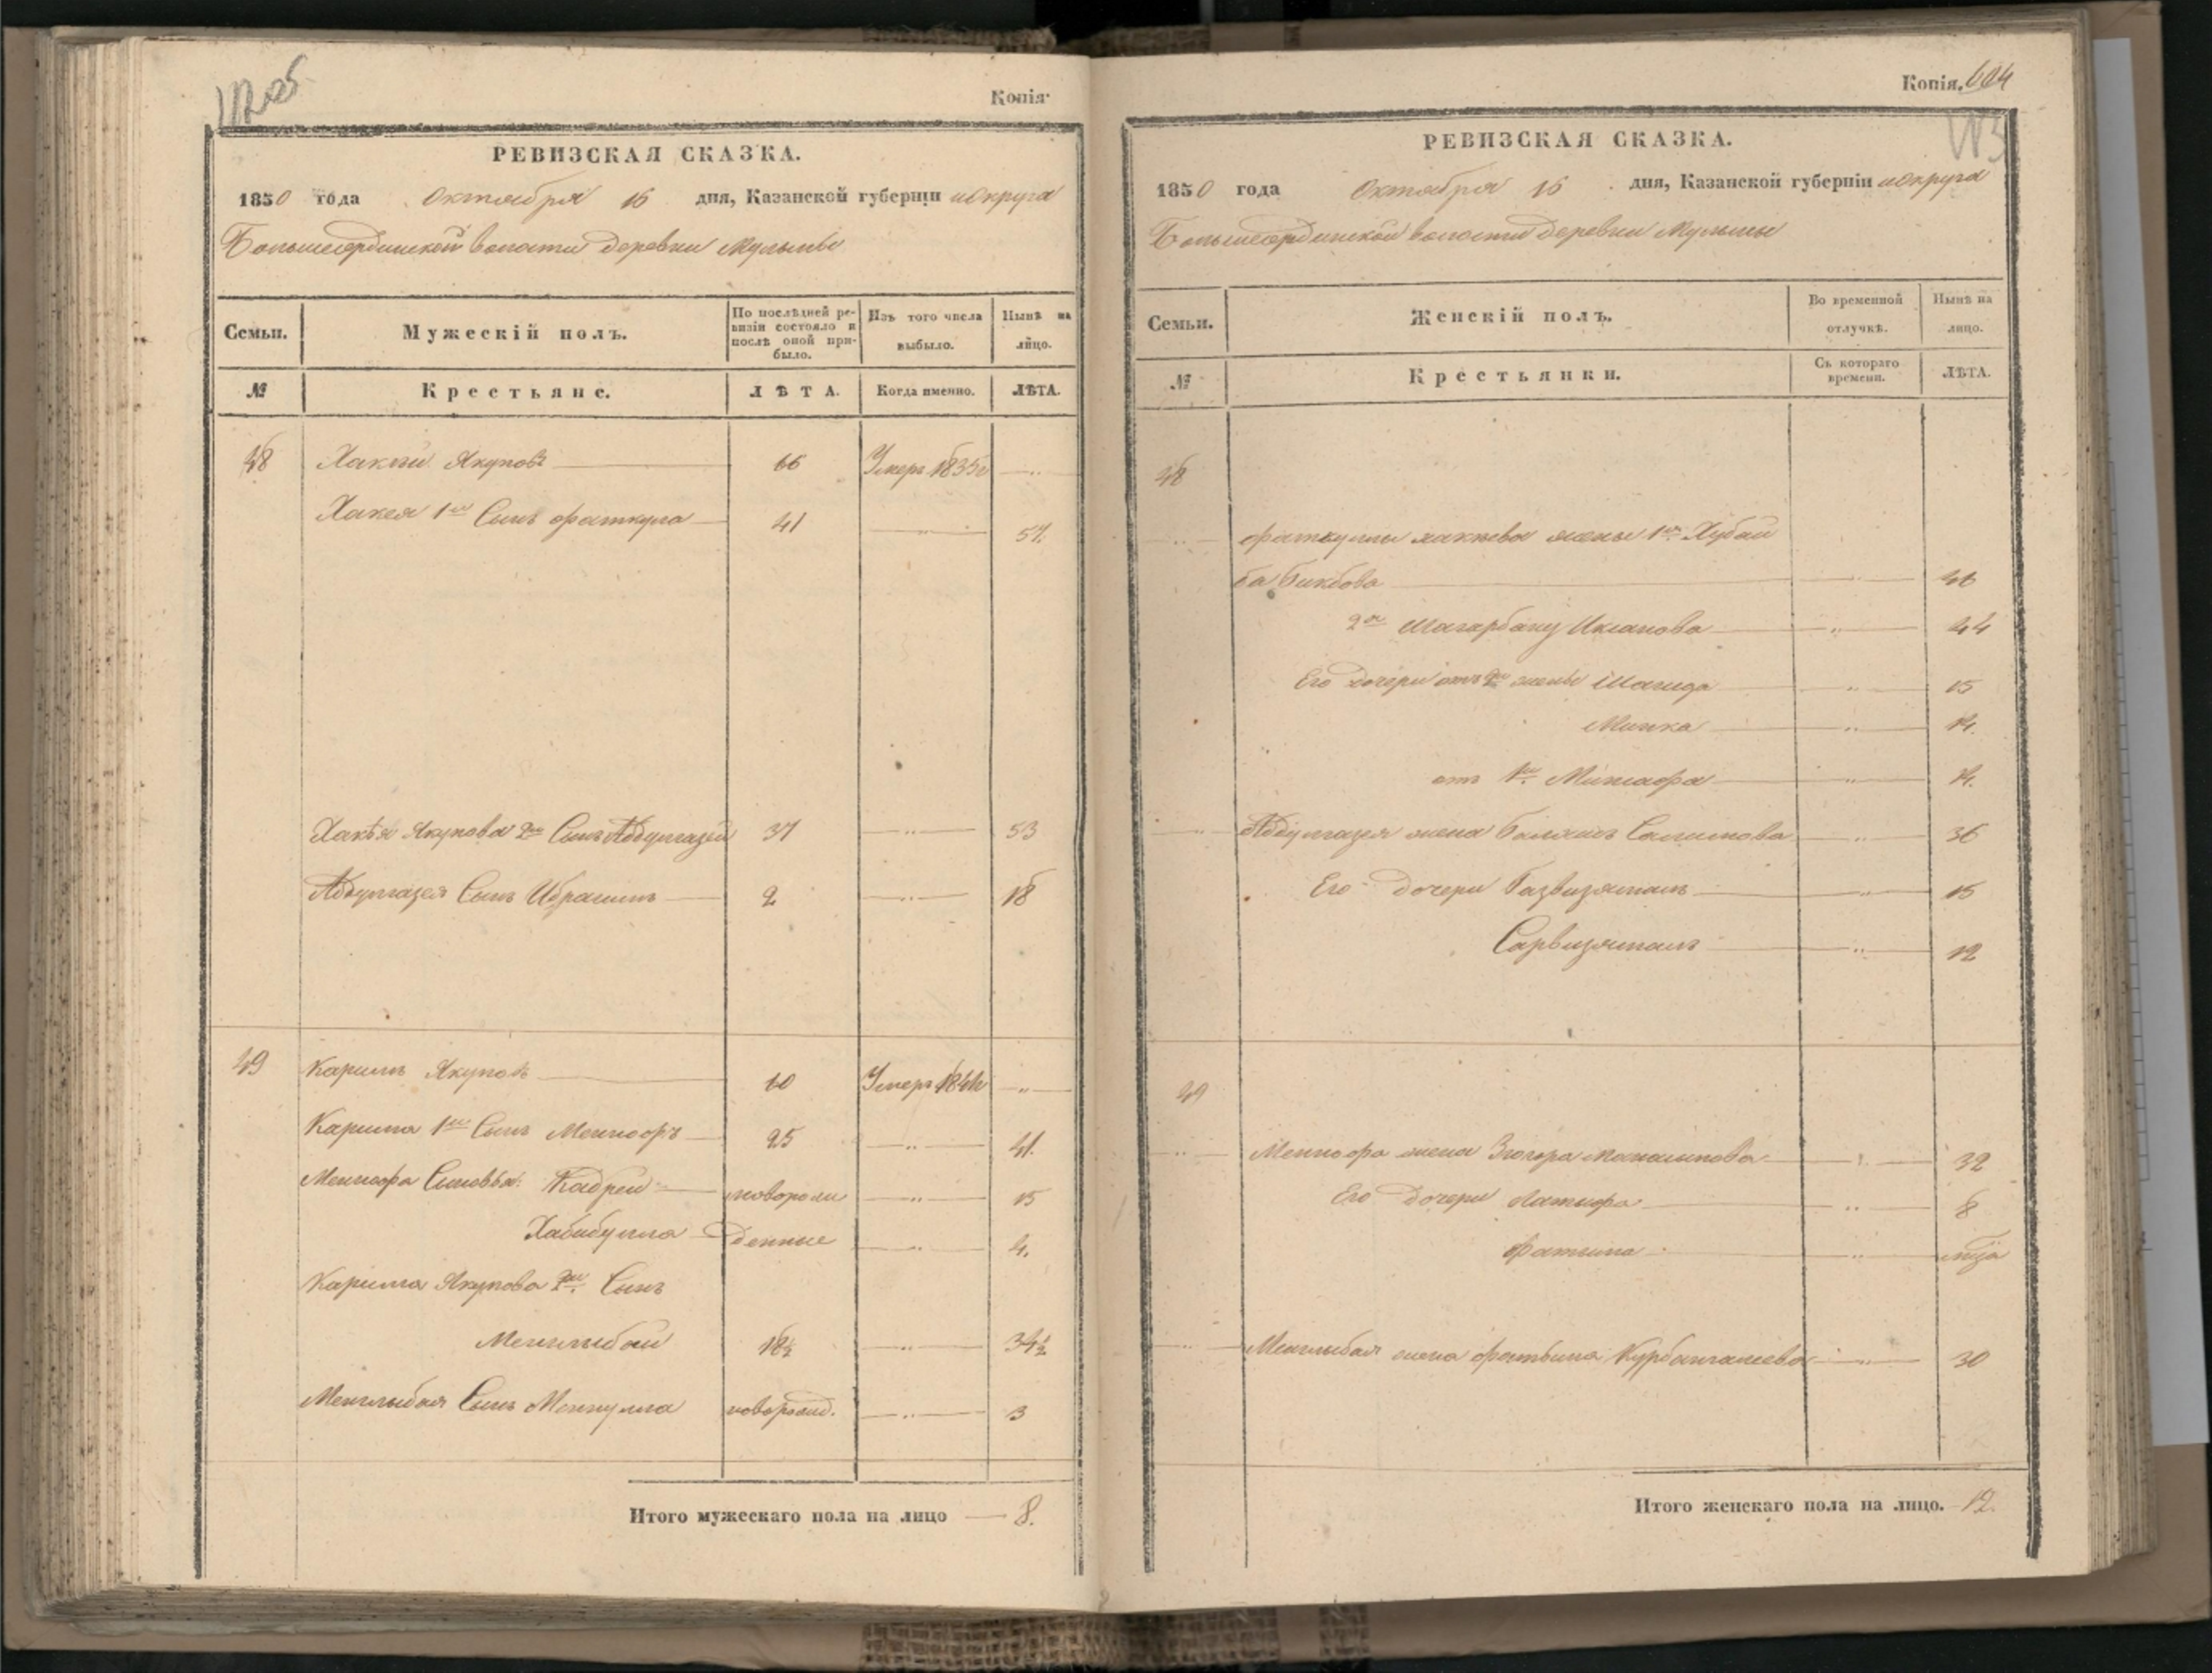 Копія.
РЕВИЗСКАЯ СКАЗКА.
1850 года Октября 16 дня, Казанской губерніи и округа
Большеординской волости деревни Мульмы
Семьи. Мужескій полъ. По послѣдней ревизіи состояло и послѣ оной прибыло. Изъ того числа выбыло. Нынѣ на лицо.
№ Крестьяне. ЛѢТА. Когда именно. ЛѢТА.
48 Хакѣй Якуповъ 66 Умеръ 1835г
Хакея 1й Сынъ Фаткула 41 57.
Хакѣя Якупова 2й Сынъ Абдулгазей 37 53
Абдулгазея Сынъ Ибрагимъ 2 18
49 Каримъ Якуповъ 60 Умеръ
Карима 1й Сынъ Менгафъ 25 41.
Сыновья: Кадрей новорож 15
Хабибулла денные 4.
Карима Якупова 2й Сынъ
Менглыбай 18½ 34½
Менглыбая Сынъ Меннулла новорожд. 3
Итого мужескаго пола на лицо 8.
Копія. 604
РЕВИЗСКАЯ СКАЗКА.
1850 года Октября 16 дня, Казанской губерніи и округа
Большеординской волости деревни Мульмы
Семьи. Женскій полъ. Во временной отлучкѣ. Нынѣ на лицо.
№ Крестьянки. Съ котораго времени. ЛѢТА.
48
Фаткуллы Хакѣева жены 1я Хубай
ба Бикбова 46
2я Шагарбану 44
Его дочери отъ 2й жены Шагида 15
14.
отъ 1й 14.
Абдулгазея жена Салимова 36
Его дочери Газвизямалъ 15
Сарвизямалъ 12
49
жена 32
Его дочери Латифа 8
Фатыма
Менглыбая жена Фатьыма Курбангалеева 30
Итого женскаго пола на лицо. 12.